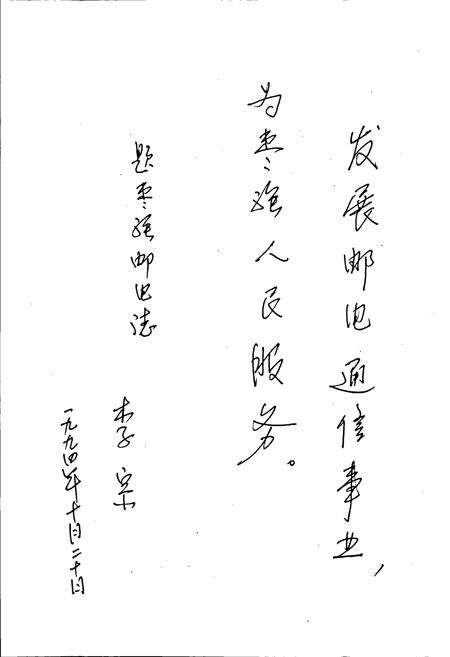 发展邮电通信事业，
为枣强人民服务。
题枣强邮电志
李宗
一九九四年十月二十日